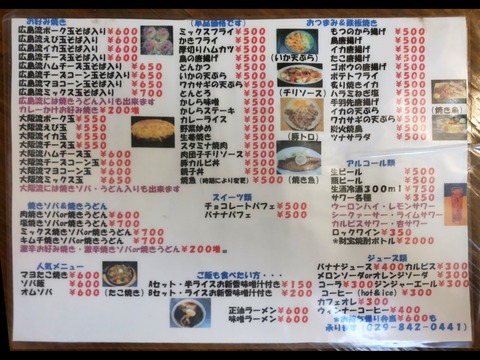 お好み焼き
広島流ポーク玉そば入り ¥600
広島流えび玉そば入り ¥600
広島流イカ玉そば入り ¥600
広島流ハムチーズ玉 ¥650
広島流チーズコーン玉そば入り ¥650
広島流マヨコーン玉そば入り ¥650
広島流ミックス玉そば入り ¥700
広島流には焼きうどん入りも出来ます
カレーかけお好み焼き ¥200増
大阪流ポーク玉 ¥550
大阪流えび玉 ¥550
大阪流イカ玉 ¥550
大阪流ハムチーズ玉 ¥600
大阪流チーズコーン玉 ¥600
大阪流マヨコーン玉 ¥600
大阪流ミックス玉 ¥650
大阪流には焼きソバ・うどん入りも出来ます
焼きソバ&焼きうどん
肉焼きソバor焼きうどん ¥600
塩焼きソバor焼きうどん ¥600
ミックス焼きソバor焼きうどん ¥700
キムチ焼きソバor焼きうどん ¥700
激辛お好み焼き・激辛焼きソバor焼きうどん ¥200増
人気メニュー
マヨたこ焼き ¥600
ソバ飯 ¥600
オムソバ ¥600
(たこ焼き)
(単品価格です)
ミックスフライ ¥500
かきフライ ¥500
厚切りハムカツ ¥500
鳥の唐揚げ ¥500
とんかつ ¥500
いかの天ぷら ¥500
ワカサギの天ぷら ¥500
とんとろ ¥500
からし味噌 ¥500
からしステーキ ¥500
カレーライス ¥500
野菜炒め ¥500
生姜焼き ¥500
スタミナ焼肉 ¥500
肉団子チリソース ¥500
豚カルビ丼 ¥500
親子丼 ¥500
焼魚(時期により変更) ¥500
(いか天ぷら)
(チリソース)
(豚トロ)
(焼き魚)
スイーツ類
チョコレートパフェ ¥500
バナナパフェ ¥500
ご飯も食べたい方・・・
Aセット・半ライスお新香味噌汁付き ¥150
Bセット・ライスお新香味噌汁付き ¥200
正油ラーメン ¥600
味噌ラーメン ¥600
おつまみ&鉄板焼き
もつのから揚げ ¥500
鳥唐揚げ ¥500
イカ唐揚げ ¥500
たこ唐揚げ ¥500
ゴボウの唐揚げ ¥500
ポテトフライ ¥500
炙り焼きイカ ¥500
ハラミおかき揚 ¥500
手羽先唐揚げ ¥500
イカの天ぷら ¥500
ワカサギの天ぷら ¥500
炭火焼鳥 ¥500
ツナサラダ ¥500
(焼き鳥)
アルコール類
生ビール ¥500
瓶ビール ¥500
生酒冷酒300ml ¥750
サワー各種 ¥350
ウーロンハイ・レモンサワー
シークァーサー・ライムサワー
カルピスサワー・杏サワー
ロックワイン ¥350
*財宝焼酎ボトル ¥2000
ジュース類
バナナジュース ¥400 カルピス ¥300
メロンソーダorオレンジソーダ ¥300
コーラ ¥300 ジンジャーエール ¥300
コーヒー(hot&ice) ¥300
カフェオレ ¥300
ウィンナーコーヒー ¥400
*お持ち帰り弁当 ¥600も
承ります(029-842-0441)